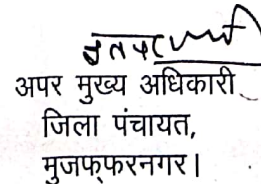 अपर मुख्य अधिकारी
जिला पंचायत,
मुजफ्फरनगर।